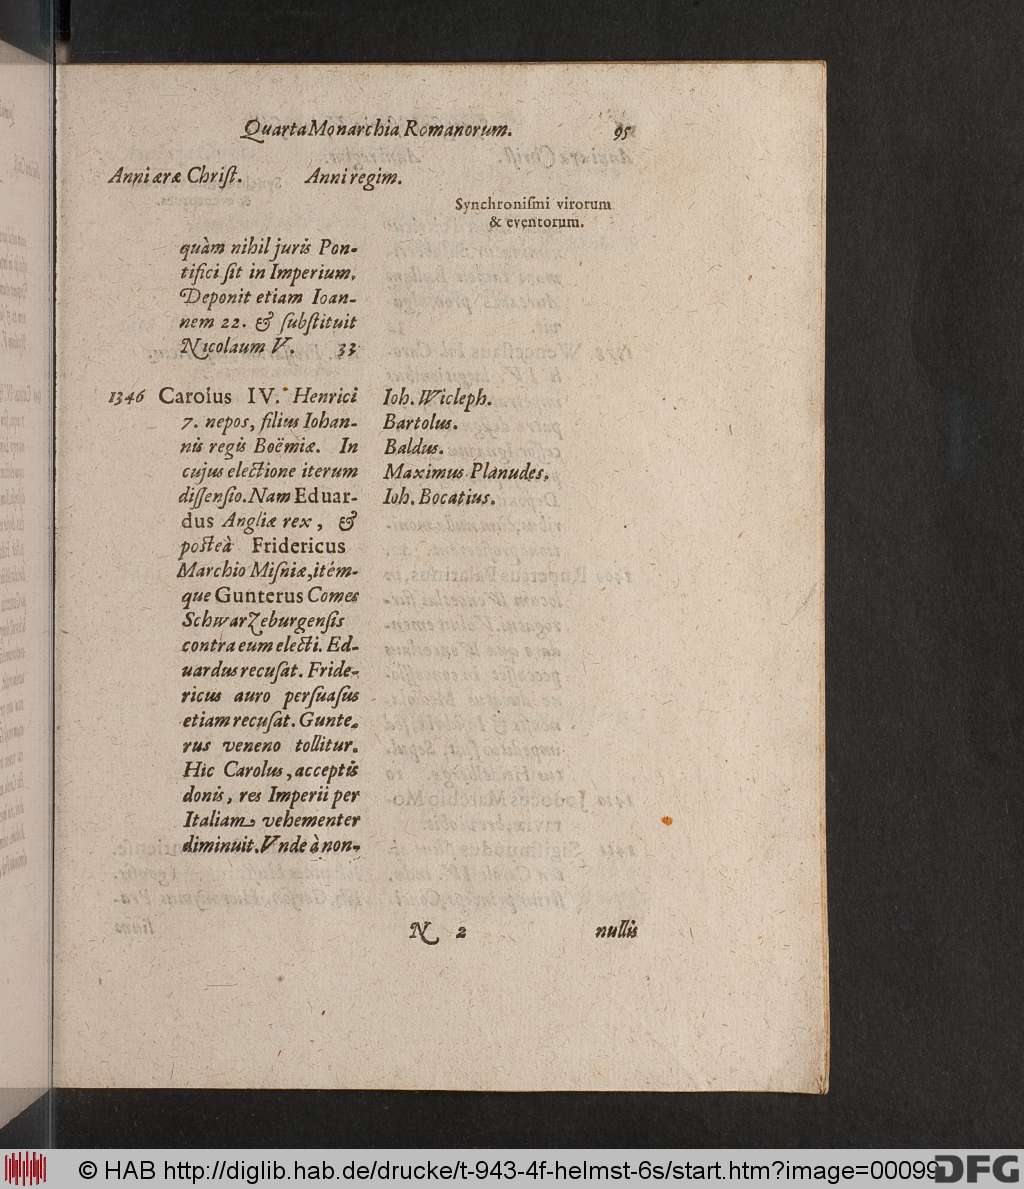 Quarta Monarchia Romanorum. 95
Anni æræ Christ. Anni regim.
Synchronismi virorum
& eventorum.
quàm nihil juris Pon-
tifici sit in Imperium.
Deponit etiam Ioan-
nem 22. & substituit
Nicolaum V. 33
1346 Carolus IV. Henrici
7. nepos, filius Iohan-
nis regis Boëmiæ. In
cujus electione iterum
dissensio. Nam Eduar-
dus Angliæ rex, &
posteà Fridericus
Marchio Misniæ, itém-
que Gunterus Comes
Schwarzeburgensis
contra eum electi. Ed-
uardus recusat. Fride-
ricus auro persuasus
etiam recusat. Gunte-
rus veneno tollitur.
Hic Carolus, acceptis
donis, res Imperii per
Italiam vehementer
diminuit. Vnde à non-
Ioh. Wicleph.
Bartolus.
Baldus.
Maximus Planudes.
Ioh. Bocatius.
N 2 nullis
© HAB http://diglib.hab.de/drucke/t-943-4f-helmst-6s/start.htm?image=00099
DFG